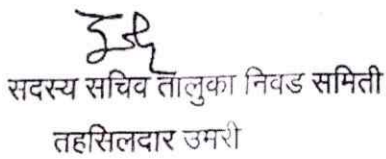 सदस्य सचिव तालुका निवड समिती
तहसिलदार उमरी